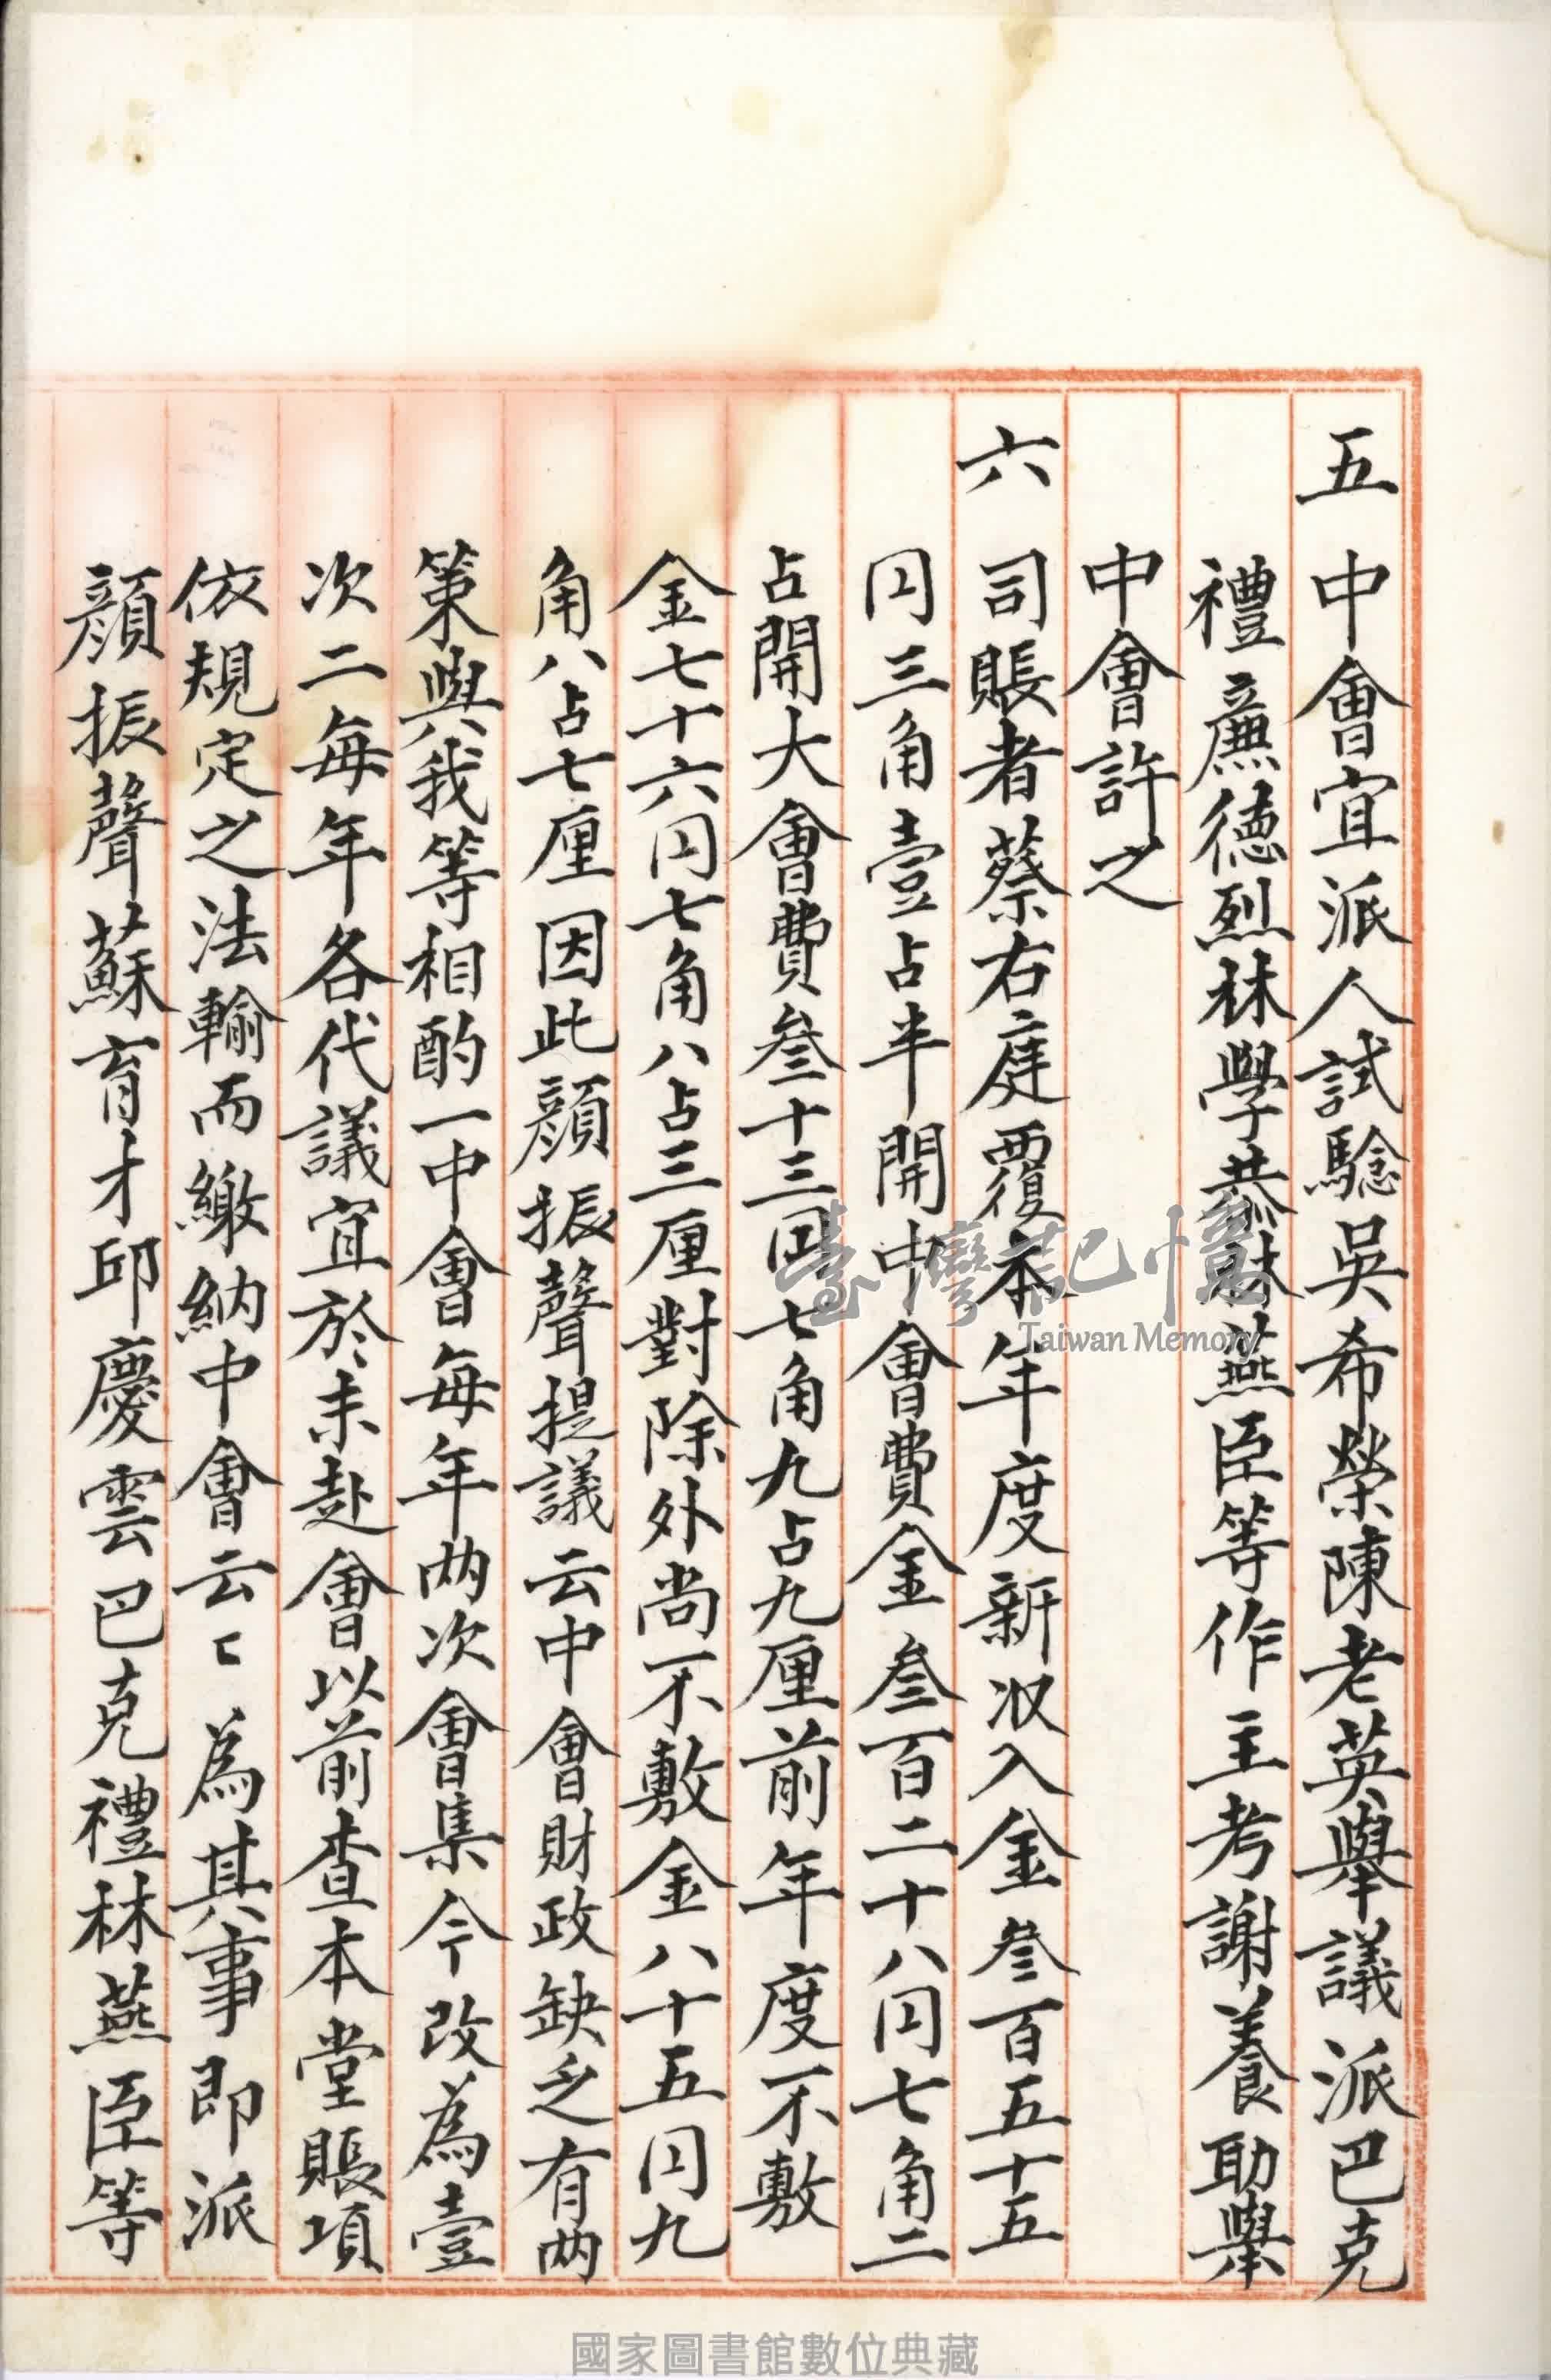 五 中會宜派人試驗吳希榮陳老英舉議派巴克
禮廉德烈林學恭財燕臣等作主考謝養助舉
中會許之
六 司賬者蔡右庭覆本年度新収入金叁百五十五
円三角壹占半開中會費金叁百二十八円七角二
占開大會費叁十三円七角九占九厘前年度不敷
金七十六円七角八占三厘對除外尚不敷金八十五円九
角八占七厘因此顏振聲提議云中會財政缺乏有两
策與我等相酌一中會每年两次會集今改為壹
次二每年各代議宜於未赴會以前查本堂賬項
依規定之法輸而繳納中會云〻為其事即派
顏振聲蘇育才邱慶雲巴克禮林燕臣等
臺灣記憶
Taiwan Memory
國家圖書館數位典藏